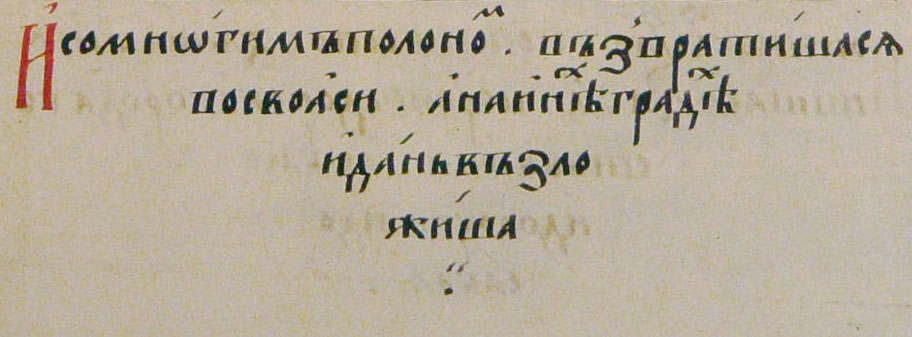 Исомнѡгимъполоноⷨ . възвратишасѧ
посвоаси . анаинѣⷯградѣⷯ
иданьвъзло
жиша